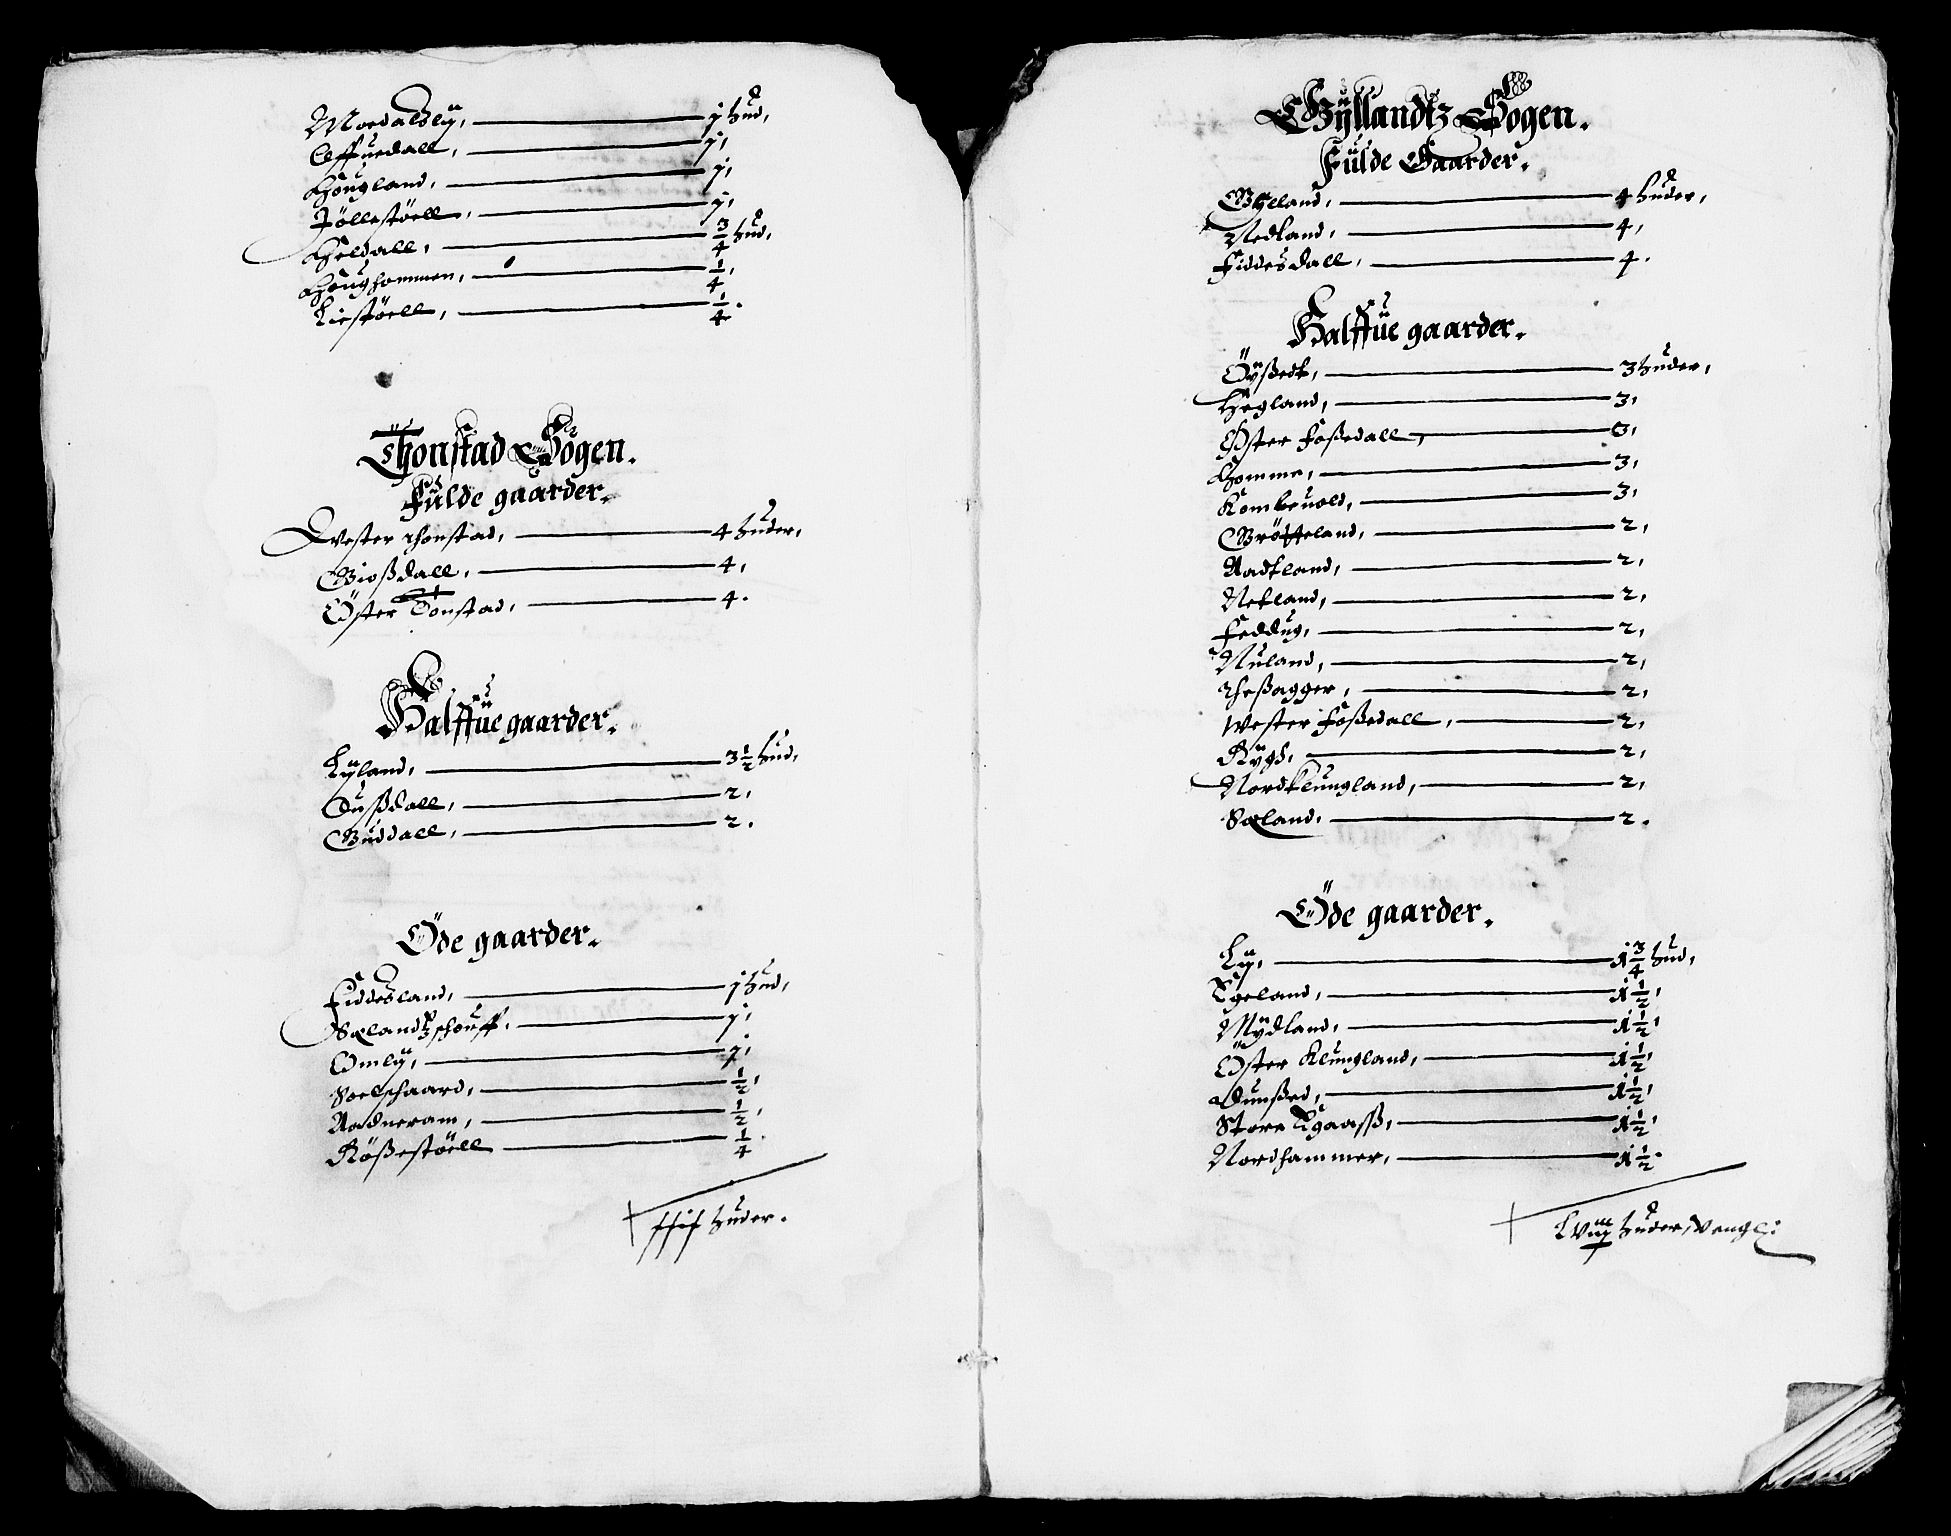 Moedalsly, 1 hud,
Öffuedall, 1,
Hougland, 1,
Jöllestöell, 1,
Heldall, 3/4 hud,
Houghommen, 1/4,
Liestöell, 1/4.
Thonstad Sogen.
Fulde gaarder.
Wester Thonstad, 4 huder,
Giosdall, 4,
Öster Tonstad, 4.
Halffue gaarder.
Lÿland, 3 1/2 hud,
Ousdall, 2,
Guddall, 2.
Öde gaarder.
Fiddesland, 1 hud,
Sælandtzschouff, 1,
Omlÿ, 1,
Soelschaard, 1/2,
Aadneram, 1/2,
Rößestöell 1/4.
huder.
Gÿllandtz Sogen.
Fulde Gaarder.
Gylland, 4 huder,
Nedland, 4,
Fiddesdall, 4.
Halffue gaarder.
Öÿßedt, 3 huder,
Hegland, 3,
Öster Foßedall, 3,
Homme, 3,
Kombeuold, 3,
Gröffteland, 2,
Aadtland, 2,
Netland, 2,
Feddug, 2,
Nuland, 2,
Theßagger, 2,
Wester Foßedall, 2,
Rÿgh, 2,
Nordklungland, 2,
Sæland, 2.
Öde gaarder.
Lÿ, 1 3/4 hud,
Egeland, 1 1/2,
Mÿdland, 1 1/2,
Öster Klungland, 1 1/2,
Dunßed, 1 1/2,
Store Egaass, 1 1/2,
Nordhammer, 1 1/2.
huder, Vengl: